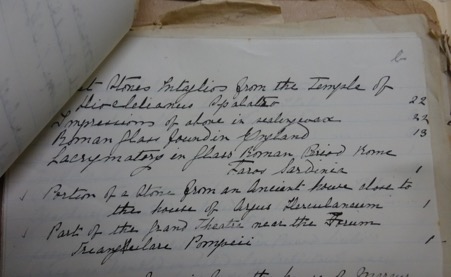 Stones Intaglios from the Temple of
Diocletianus Spalatro 22
Impressions of above in sealingwax 22
Roman Glass found in England 13
Lacrymatory in Glass Roman, Rome
Sardinia 1
1 Portion of a Stone from an Ancient house close to
the house of Argus Herculaneum 1
1 Part of the Grand Theatre near the Forum
Triangulare Pompeii 1
the house of